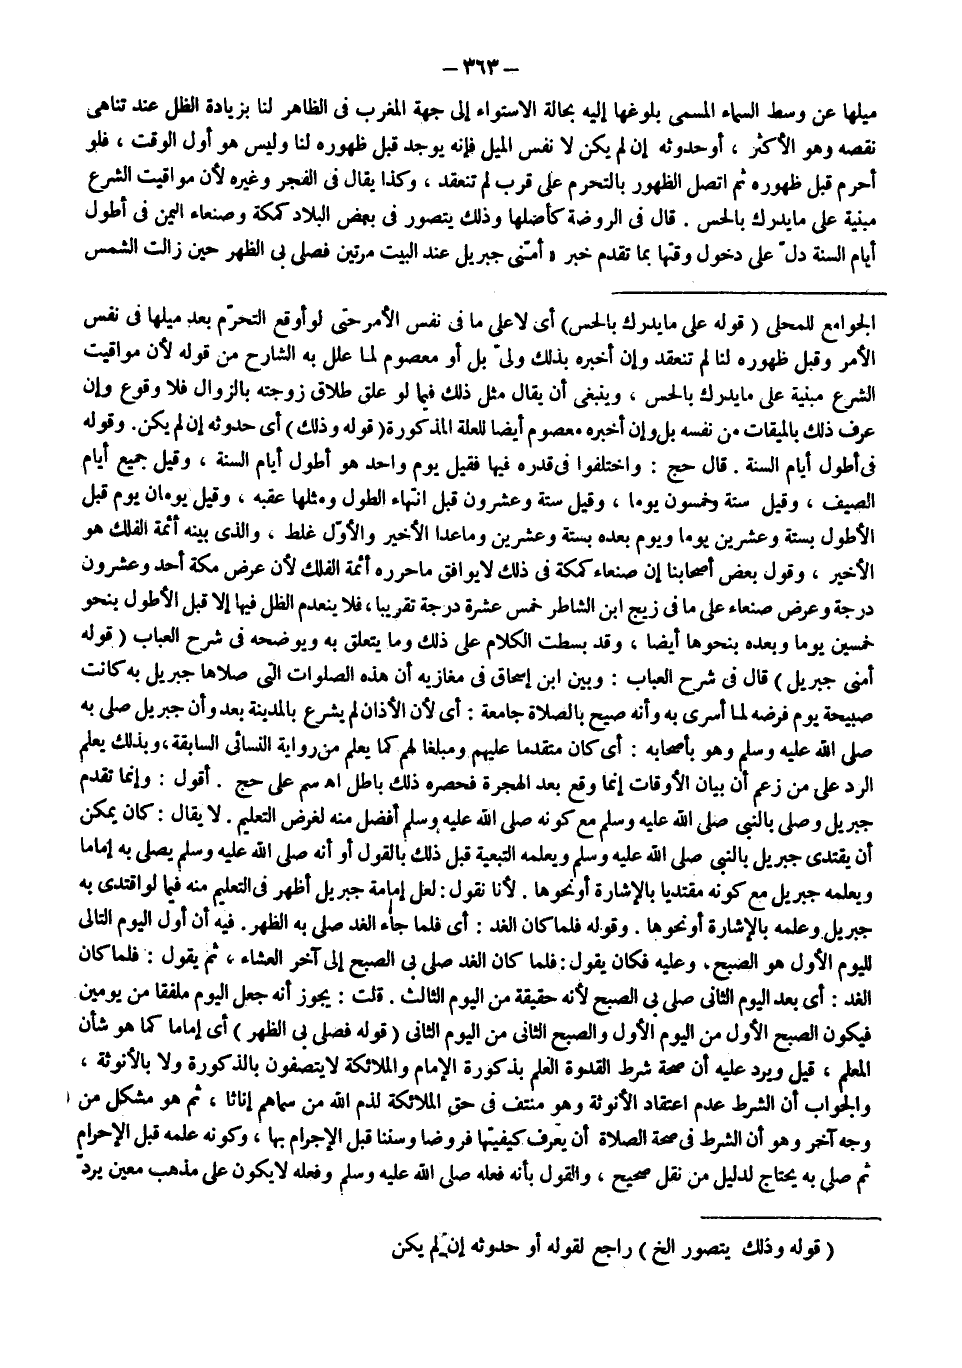 — ٣٦٣ —
ميلها عن وسط السماء المسمى بلوغها إليه بحالة الاستواء إلى جهة المغرب فى الظاهر لنا بزيادة الظل عند تناهى
نقصه وهو الأكثر ، أوحدوثه إن لم يكن لا نفس الميل فإنه يوجد قبل ظهوره لنا وليس هو أول الوقت ، فلو
أحرم قبل ظهوره ثم اتصل الظهور بالتحرم على قرب لم تنعقد ، وكذا يقال فى الفجر وغيره لأن مواقيت الشرع
مبنية على مايدرك بالحس . قال فى الروضة كأصلها وذلك يتصور فى بعض البلاد كمكة وصنعاء اليمن فى أطول
أيام السنة دلّ على دخول وقتها بما تقدم خبر « أمّنى جبريل عند البيت مرتين فصلى بى الظهر حين زالت الشمس
الجوامع للمحلى ( قوله على مايدرك بالحس) أى لاعلى ما فى نفس الأمر حتى لو أوقع التحرّم بعد ميلها فى نفس
الأمر وقبل ظهوره لنا لم تنعقد وإن أخبره بذلك ولىّ بل أو معصوم لما علل به الشارح من قوله لأن مواقيت
الشرع مبنية على مايدرك بالحس ، وينبغى أن يقال مثل ذلك فيما لو علق طلاق زوجته بالزوال فلا وقوع وإن
عرف ذلك بالميقات من نفسه بل وإن أخبره معصوم أيضا للعلة المذكورة ( قوله وذلك ) أى حدوثه إن لم يكن. وقوله
فى أطول أيام السنة . قال حج : واختلفوا فى قدره فيها فقيل يوم واحد هو أطول أيام السنة ، وقيل جميع أيام
الصيف ، وقيل ستة وخمسون يوما ، وقيل ستة وعشرون قبل انتهاء الطول ومثلها عقبه ، وقيل يومان يوم قبل
الأطول بستة وعشرين يوما ويوم بعده بستة وعشرين وماعدا الأخير والأوّل غلط ، والذى بينه أئمة الفلك هو
الأخير ، وقول بعض أصحابنا إن صنعاء كمكة فى ذلك لايوافق ماحرره أئمة الفلك لأن عرض مكة أحد وعشرون
درجة وعرض صنعاء على ما فى زيج ابن الشاطر خمس عشرة درجة تقريبا، فلا ينعدم الظل فيها إلا قبل الأطول بنحو
خمسين يوما وبعده بنحوها أيضا ، وقد بسطت الكلام على ذلك وما يتعلق به ويوضحه فى شرح العباب ( قوله
أمنى جبريل ) قال فى شرح العباب : وبين ابن إسحاق فى مغازيه أن هذه الصلوات التى صلاها جبريل به كانت
صبيحة يوم فرضه لما أسرى به وأنه صيح بالصلاة جامعة : أى لأن الأذان لم يشرع بالمدينة بعد وأن جبريل صلى به
صلى الله عليه وسلم وهو بأصحابه : أى كان متقدما عليهم ومبلغا لهم كما يعلم من رواية النسائى السابقة، وبذلك يعلم
الرد على من زعم أن بيان الأوقات إنما وقع بعد الهجرة فحصره ذلك باطل اه سم على حج . أقول : وإنما تقدم
جبريل وصلى بالنبى صلى الله عليه وسلم مع كونه صلى الله عليه وسلم أفضل منه لغرض التعليم . لا يقال : كان يمكن
أن يقتدى جبريل بالنبى صلى الله عليه وسلم ويعلمه التبعية قبل ذلك بالقول أو أنه صلى الله عليه وسلم يصلى به إماما
ويعلمه جبريل مع كونه مقتديا بالإشارة أونحوها . لأنا نقول : لعل إمامة جبريل أظهر فى التعليم منه فيما لو اقتدى به
جبريل وعلمه بالإشارة أونحوها . وقوله فلما كان الغد : أى فلما جاء الغد صلى به الظهر. فيه أن أول اليوم التالى
لليوم الأول هو الصبح. وعليه فكان يقول : فلما كان الغد صلى بى الصبح إلى آخر العشاء ، ثم يقول : فلما كان
الغد : أى بعد اليوم الثانى صلى بى الصبح لأنه حقيقة من اليوم الثالث . قلت : يجوز أنه جعل اليوم ملفقا من يومين
فيكون الصبح الأول من اليوم الأول والصبح الثانى من اليوم الثانى ( قوله فصلى بى الظهر ) أى إماما كما هو شأن
المعلم ، قيل ويرد عليه أن صحة شرط القدوة العلم بذكورة الإمام والملائكة لايتصفون بالذكورة ولا بالأنوثة ،
والجواب أن الشرط عدم اعتقاد الأنوثة وهو منتف فى حق الملائكة لذم الله من سماهم إناثا ، ثم هو مشكل من
وجه آخر وهو أن الشرط فى صحة الصلاة أن يعرف كيفيتها فروضا وسننا قبل الإجرام بها ، وكونه علمه قبل الإحرام
ثم صلى به يحتاج لدليل من نقل صحيح ، والقول بأنه فعله صلى الله عليه وسلم وفعله لايكون على مذهب معين يردّ
( قوله وذلك يتصور الخ ) راجع لقوله أو حدوثه إن لم يكن